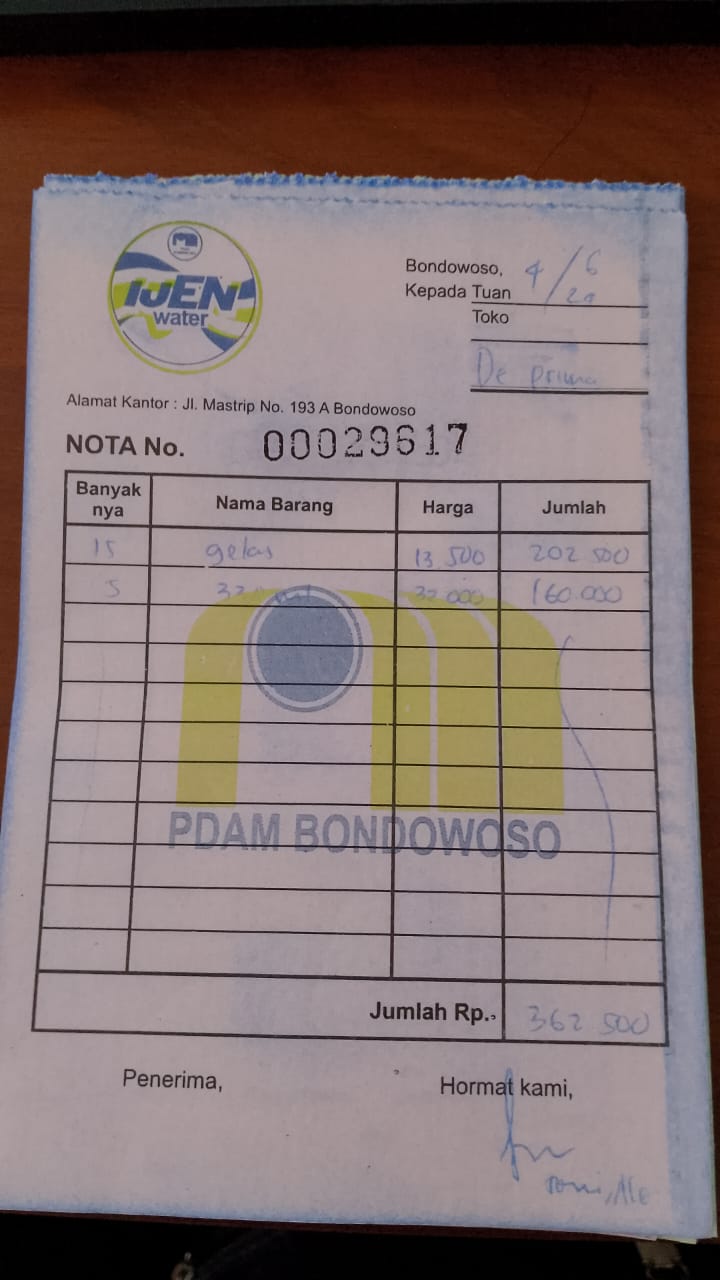 IJEN
water
Bondowoso, 4/6
Kepada Tuan 20
Toko
De prima
Alamat Kantor : Jl. Mastrip No. 193 A Bondowoso
NOTA No. 00029617
Banyak nya Nama Barang Harga Jumlah
15 gelas 13 500 202 500
5 ml 32.000 160.000
PDAM BONDOWOSO
Jumlah Rp.. 362 500
Penerima, Hormat kami,